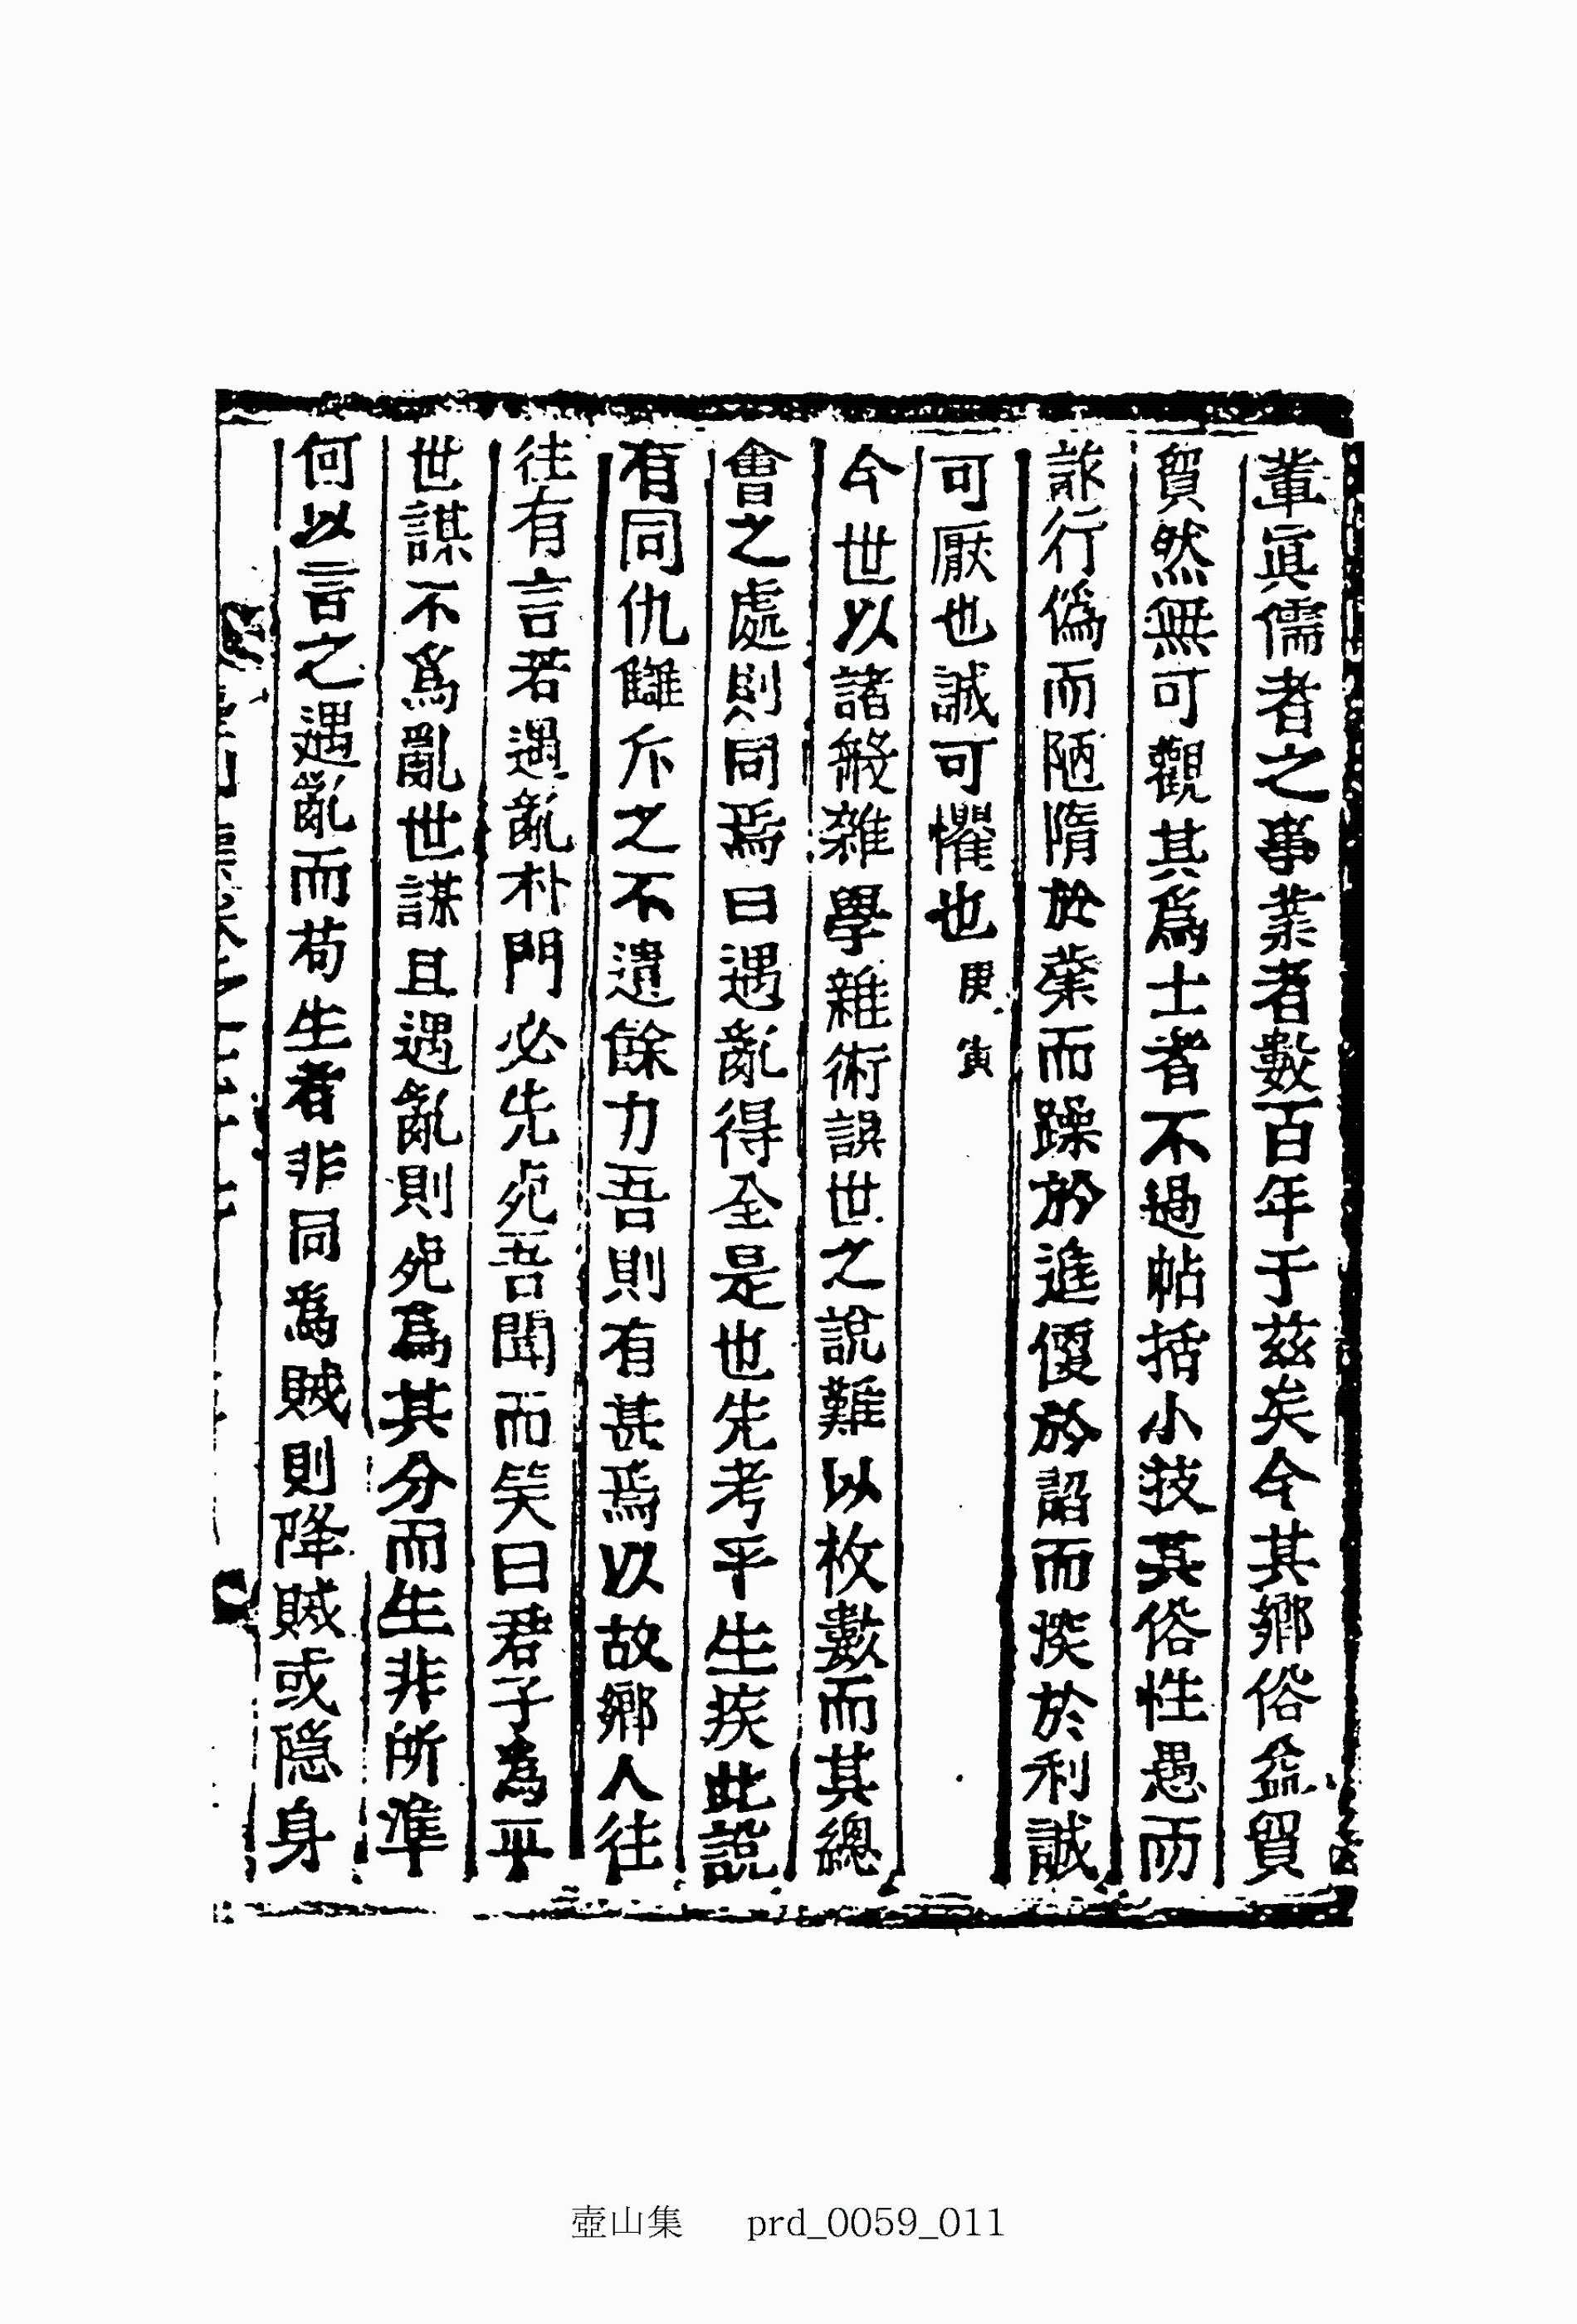 輩眞儒者之事業者數百年于茲矣今其鄕俗益貿
貿然無可觀其爲士者不過帖括小技其俗性愚而
詐行僞而陋隋於業而躁於進優於諂而於利誠
可厭也誠可懼也庚寅
今世以諸般雜學雜術誤世之說難以枚數而其總
會之處則同焉曰遇亂得全是也先考平生疾此說
有同仇讎斥之不遺餘力吾則有甚焉以故鄕人往
往有言若遇亂朴門必先死吾聞而笑曰君子為平
世謀不爲亂世謀且遇亂則死爲其分而生非所準
何以言之遇亂而苟生者非同爲賊則降賊或隱身
壺山集 prd_0059_011